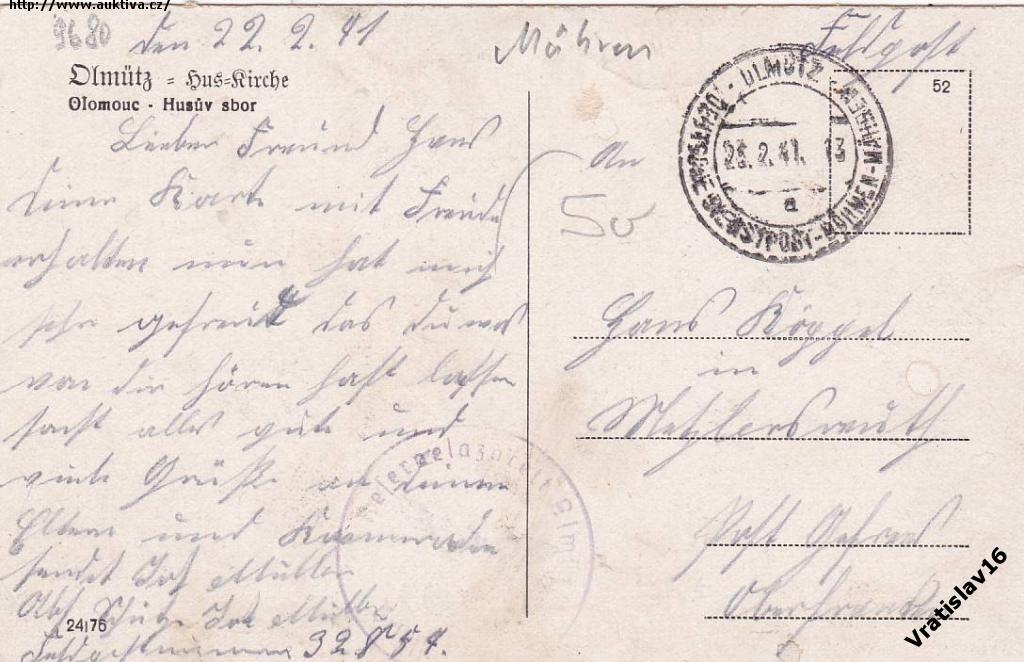 http://www.auktiva.cz/
9680
den 22. 2. 41
Mähren
Feldpost
Olmütz = Hus-Kirche
Olomouc - Husův sbor
52
DEUTSCHE DIENSTPOST - BÖHMEN - MÄHREN
OLMÜTZ
23. 2. 41. 13
a
Lieber Freund Hans
Deine Karte mit Freude
erhalten nun hat mich
sehr gefreut das du was
von dir hören hast lassen
sonst alles gute und
viele Grüße an deinen
Eltern und Kameraden
sendet Josf Müller
Abs Schütze Josf Müller
Feldpostnummer 32854.
24176
Reservelazarett Olmütz
An
50
Hans Köppel
in
Metzlersreuth
Post Gefrees
Oberfranken
Vratislav16